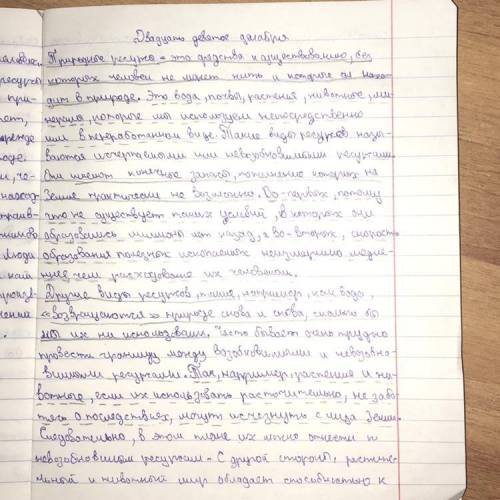 ресурсы
при-
Люди
Двадцать девятое декабря
Природные ресурсы - это средства к существованию, без
которых человек не может жить и которые он нахо-
дит в природе. Это вода, почвы, растения, животные, ми-
нералы, которые мы используем непосредственно
или в переработанном виде. Такие виды ресурсов назы-
ваются исчерпаемыми или невозобновимыми ресурсами.
Они имеют конечные запасы, пополнение которых на
Земле практически не возможно. Во-первых, потому
что не существует таких условий, в которых они
образовались миллионы лет назад, а во-вторых, скорость
образования полезных ископаемых неизмеримо медлен-
нее чем расходование их человеком.
Другие виды ресурсов, такие, например, как вода,
«возвращаются» природе снова и снова, сколько бы
мы их ни использовали. Часто бывает очень трудно
провести границу между возобновимыми и невозобно-
вимыми ресурсами. Так, например, растения и жи-
вотные, если их использовать расточительно, не забо-
тясь о последствиях, могут исчезнуть с лица Земли.
Следовательно, в этом плане их можно отнести к
невозобновимым ресурсам. С другой стороны, растите-
льный и животный мир обладает способностью к